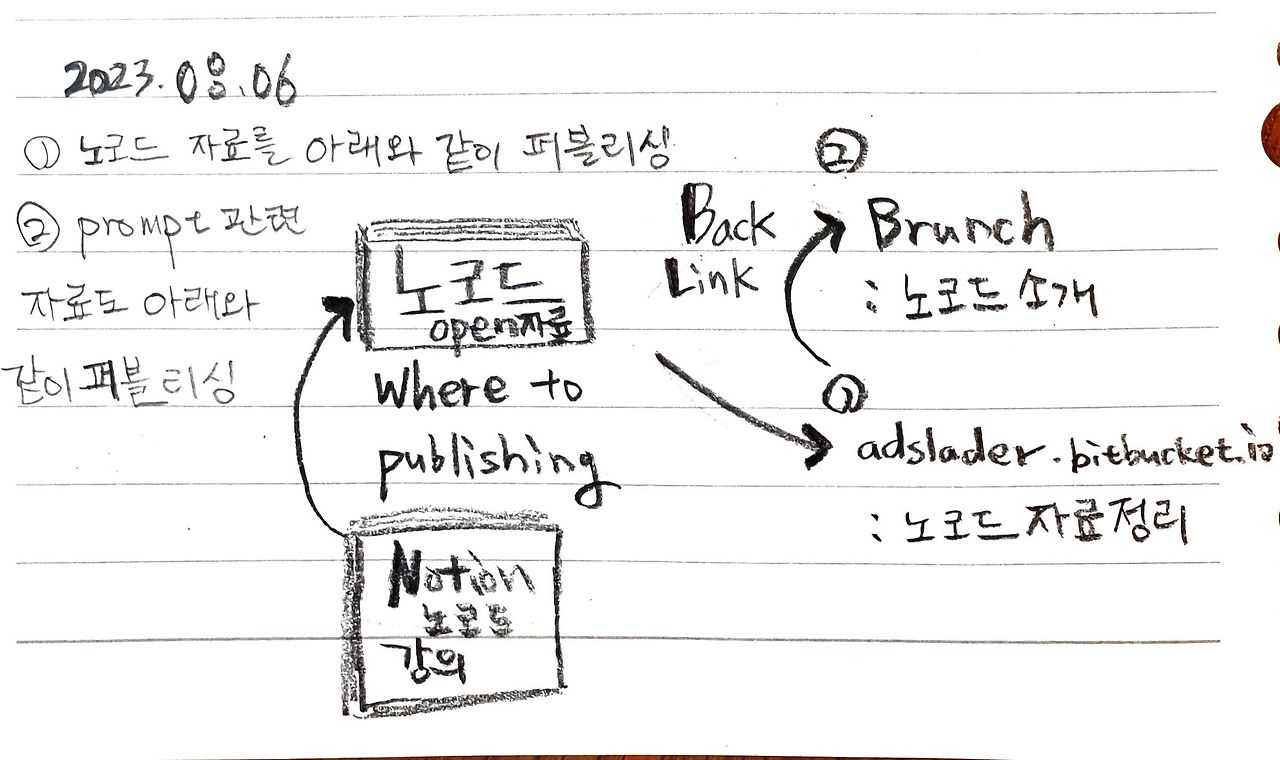 2023.08.06
① 노코드 자료를 아래와 같이 퍼블리싱
② prompt 관련
자료도 아래와
같이 퍼블리싱
노코드
open자료
Where to
publishing
Notion
노코드
강의
Back
Link
②
Brunch
: 노코드 소개
①
adslader.bitbucket.io
: 노코드 자료정리